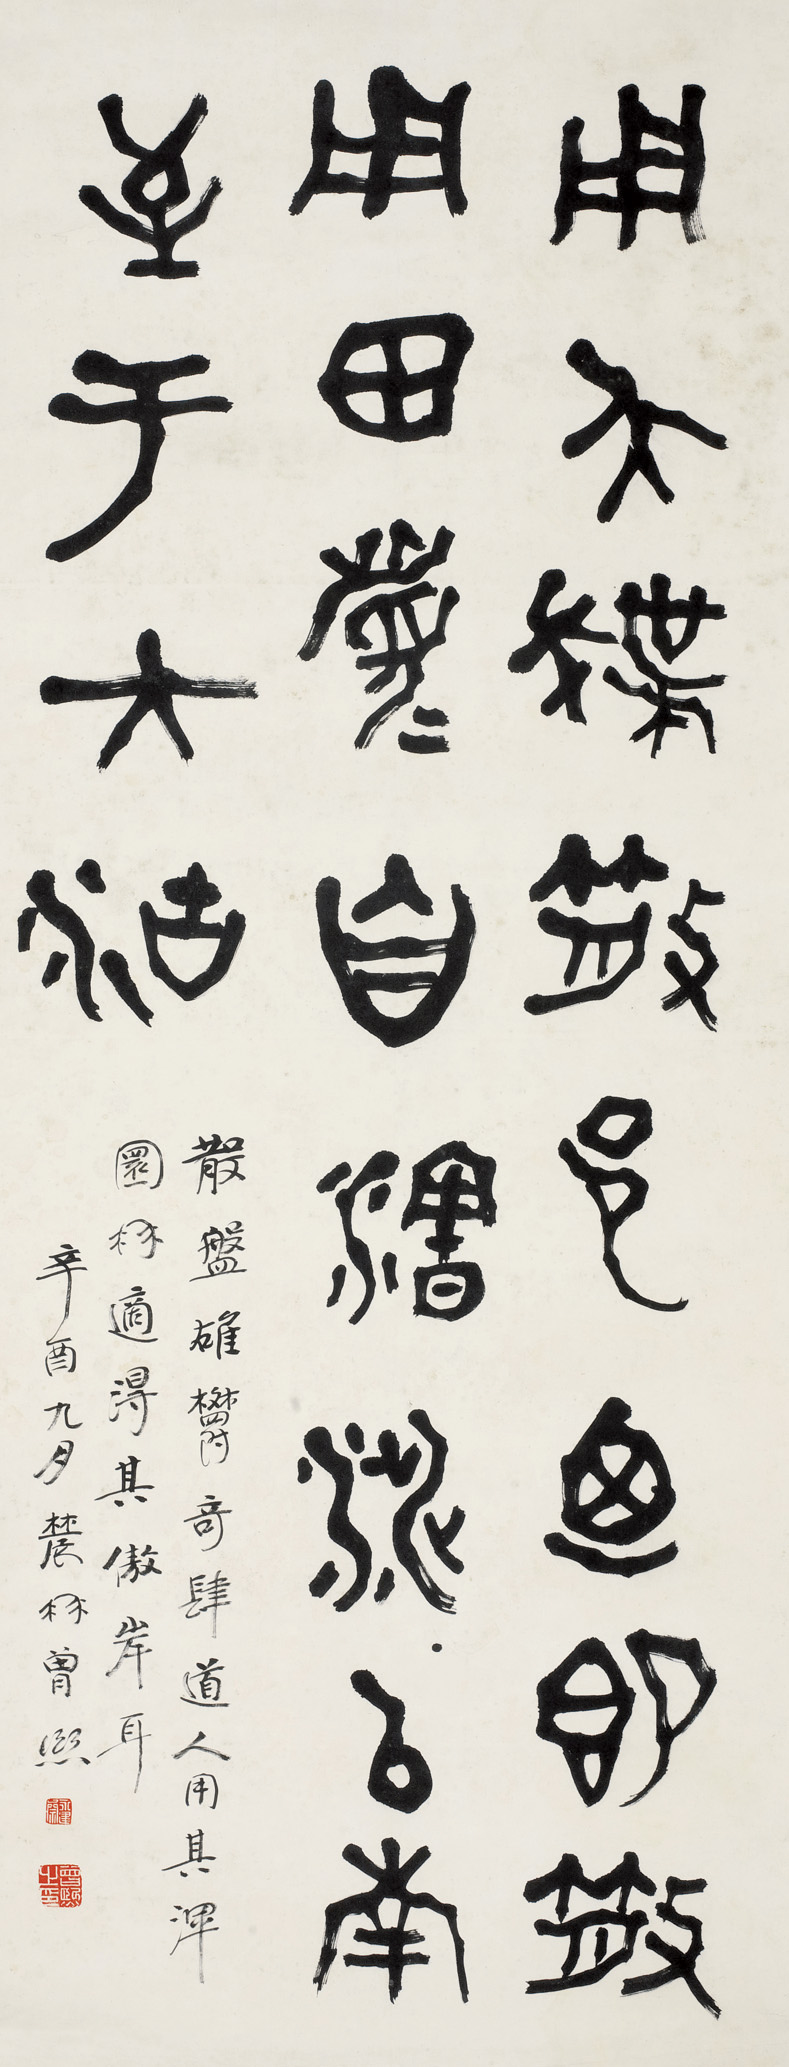 用夨撲散邑廼即散
用田眉自瀗涉以南
至于大沽
散盤雄鬱奇肆道人用其渾
圜髯適得其傲岸耳
辛酉九月農髯曾熙
曾熙之印